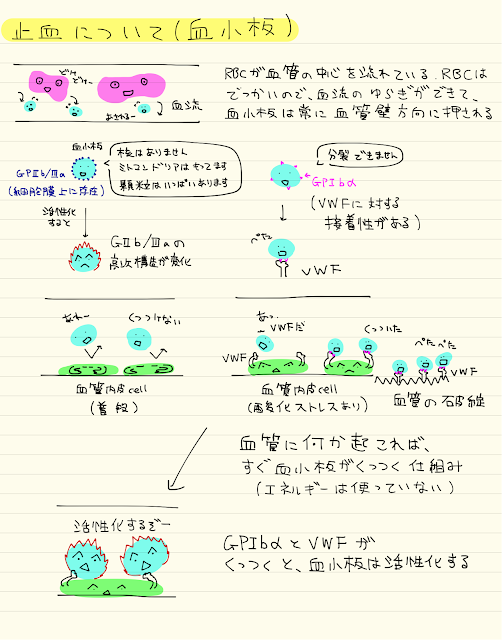 止血について(血小板)
どけ どけー
おされるー
血流
RBCが血管の中心を流れている。RBCは
でっかいので、血流のゆらぎができて、
血小板は常に血管壁方向に押される
血小板
GPⅡb/Ⅲa
(細胞膜上に存在)
核はありません
ミトコンドリアはもってます
顆粒はいっぱいあります
活性化
すると
GⅡb/Ⅲaの
高次構造が変化
分裂できません
GPIbα
(VWFに対する
接着性がある)
ぺた
VWF
あれー
くっつけない
血管内皮cell
(普段)
あっ、
VWFだ
VWF
くっついた
血管内皮cell
(酸化ストレスあり)
ぺた
ぺた
VWF
血管の破綻
血管に何か起これば、
すぐ血小板がくっつく仕組み
(エネルギーは使っていない)
活性化するぞー
GPIbαとVWFが
くっつくと、血小板は活性化する